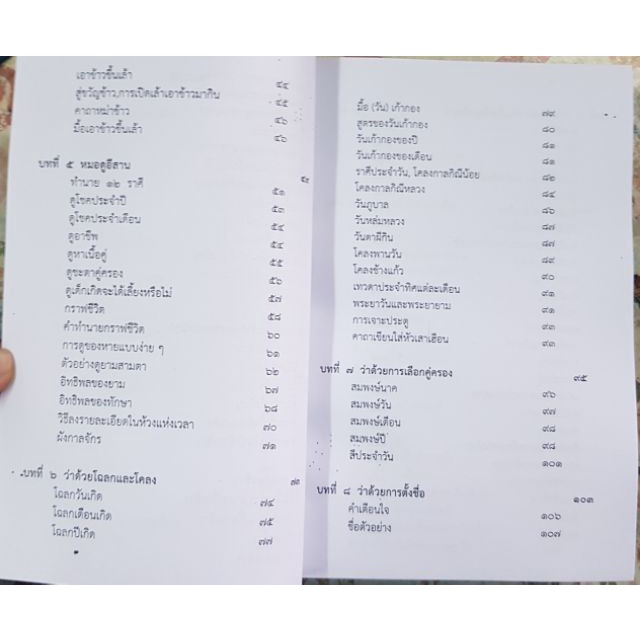 เอาข้าวขึ้นเล้า ๔๔
สู่ขวัญข้าว,การเปิดเล้าเอาข้าวมากิน ๔๕
คาถาหม่าข้าว ๔๖
มื้อเอาข้าวขึ้นเล้า ๔๖
บทที่ ๕ หมอดูอีสาน
ทำนาย ๑๒ ราศี ๕๑
ดูโชคประจำปี ๕๓
ดูโชคประจำเดือน ๕๔
ดูอาชีพ ๕๔
ดูหาเนื้อคู่ ๕๕
ดูชะตาคู่ครอง ๕๖
ดูเด็กเกิดจะได้เลี้ยงหรือไม่ ๕๗
กราฟชีวิต ๕๘
คำทำนายกราฟชีวิต ๖๐
การดูของหายแบบง่าย ๆ ๖๑
ตัวอย่างดูยามสามตา ๖๒
อิทธิพลของยาม ๖๗
อิทธิพลของทักษา ๖๘
วิธีลงรายละเอียดในห้วงแห่งเวลา ๗๐
ผังกาลจักร ๗๑
บทที่ ๖ ว่าด้วยโฉลกและโคลง ๗๓
โฉลกวันเกิด ๗๔
โฉลกเดือนเกิด ๗๕
โฉลกปีเกิด ๗๗
มื้อ (วัน) เก้ากอง ๗๙
สูตรของวันเก้ากอง ๘๐
วันเก้ากองของปี ๘๑
วันเก้ากองของเดือน ๘๑
ราศีประจำวัน, โคลงกาลกิณีน้อย ๘๒
โคลงกาลกิณีหลวง ๘๔
วันภูบาล ๘๖
วันหล่มหลวง ๘๗
วันตาผีกิน ๘๗
โคลงพานวัน ๘๙
โคลงช้างแก้ว ๙๐
เทวดาประจำทิศแต่ละเดือน ๙๑
พระยาวันและพระยายาม ๙๑
การเจาะประตู ๙๓
คาถาเขียนใส่หัวเสาเฮือน ๙๓
บทที่ ๗ ว่าด้วยการเลือกคู่ครอง ๙๕
สมพงษ์นาค ๙๖
สมพงษ์วัน ๙๗
สมพงษ์เดือน ๙๘
สมพงษ์ปี ๙๘
สีประจำวัน ๑๐๑
บทที่ ๘ ว่าด้วยการตั้งชื่อ ๑๐๓
คำเตือนใจ ๑๐๖
ชื่อตัวอย่าง ๑๐๗